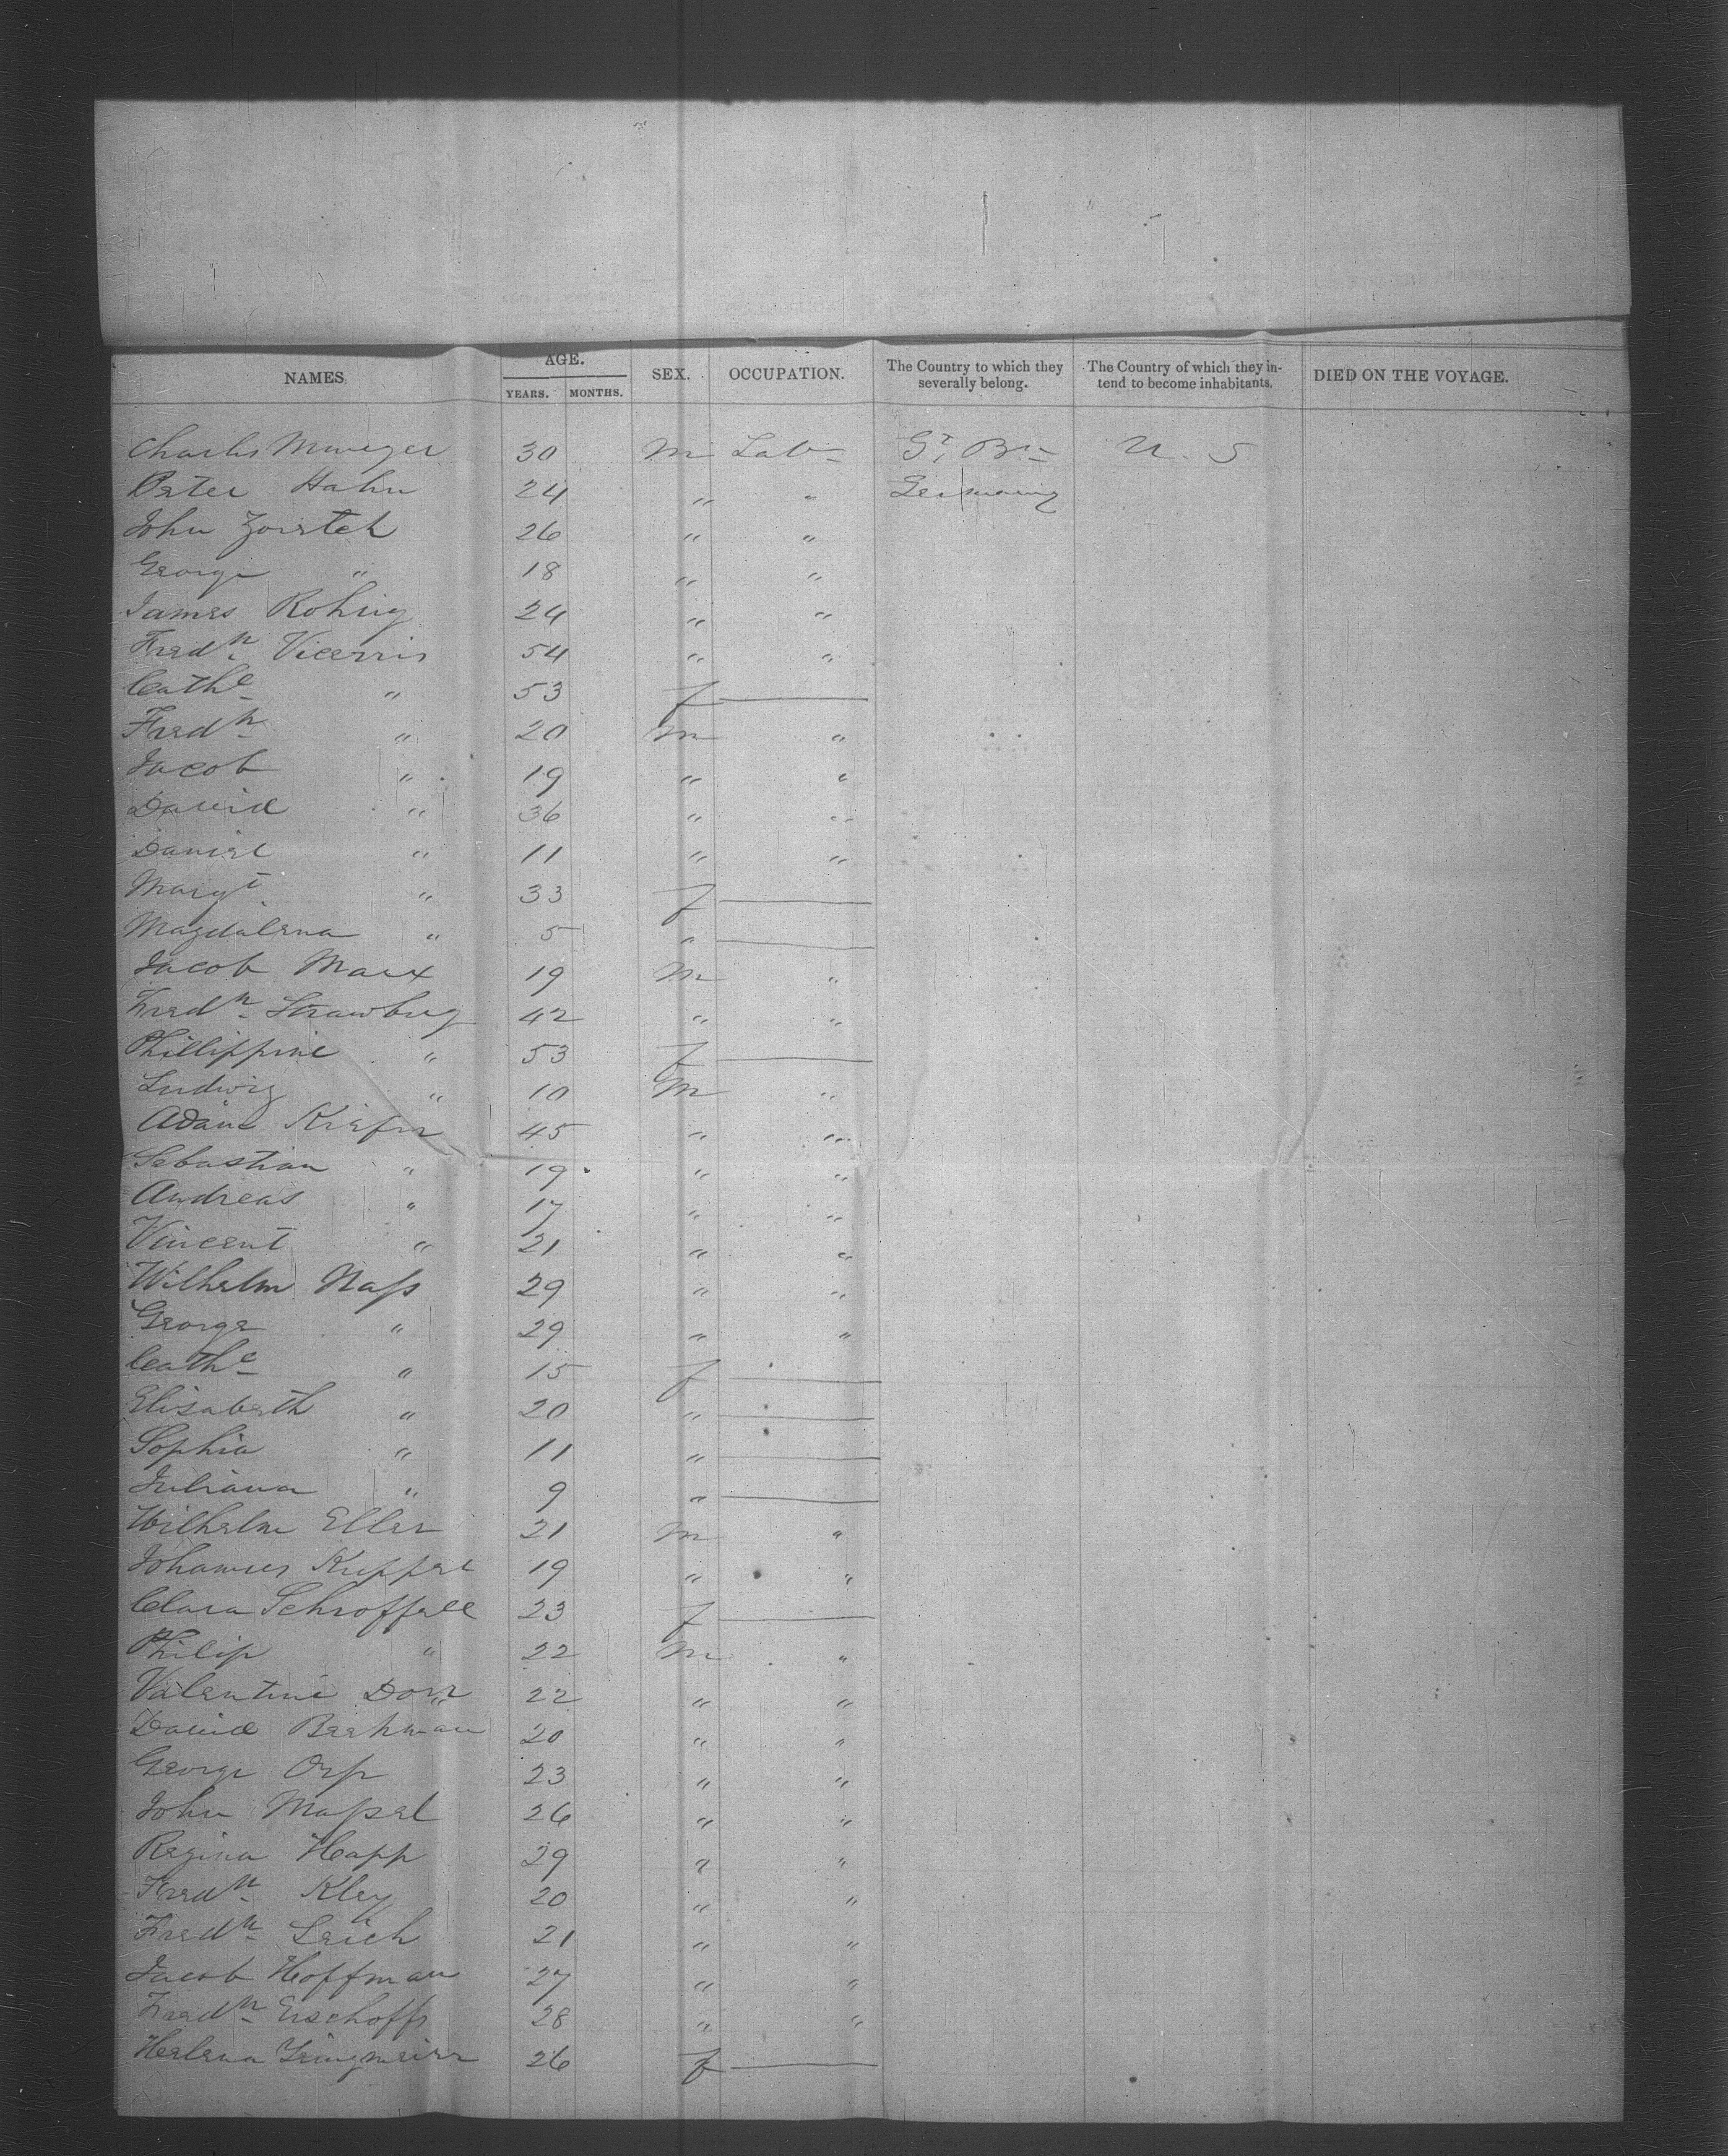 NAMES. AGE. SEX. OCCUPATION. The Country to which they severally belong. The Country of which they intend to become inhabitants. DIED ON THE VOYAGE.
YEARS. MONTHS.
Charles 30 m Labr Gt Brn U. S
Peter Hahn 24 " " Germany
John 26 " "
George " 18 " "
James Rohrig 24 " "
Fredk 54 " "
Cathe " 53 f —
Fredk " 20 m "
Jacob " 19 " "
David " 36 " "
Daniel " 11 " "
Margt " 33 f —
Magdalena " 5 " —
Jacob Marx 19 m "
Fredk Strawbrg 42 " "
Phillippine " 53 f —
Ludwig " 10 m "
Adam Kiefer 45 " "
Sebastian " 19 " "
Andreas " 17 " "
Vincent " 21 " "
Wilhelm Nass 29 " "
George " 29 " "
Cathe " 15 f —
Elisabeth " 20 " —
Sophia " 11 " —
Juliana " 9 " —
Wilhelm Eller 21 m "
Johannes Kuppel 19 " "
Clara Schroffell 23 f —
Philip " 22 m "
Valentine Dorr 22 " "
David Beekman 20 " "
George 23 " "
John Massel 26 " "
Regina Happ 29 " "
Fredk Kley 20 " "
Fredk Leich 21 " "
Jacob Hoffman 27 " "
Fredk 28 " "
Helena 26 f —